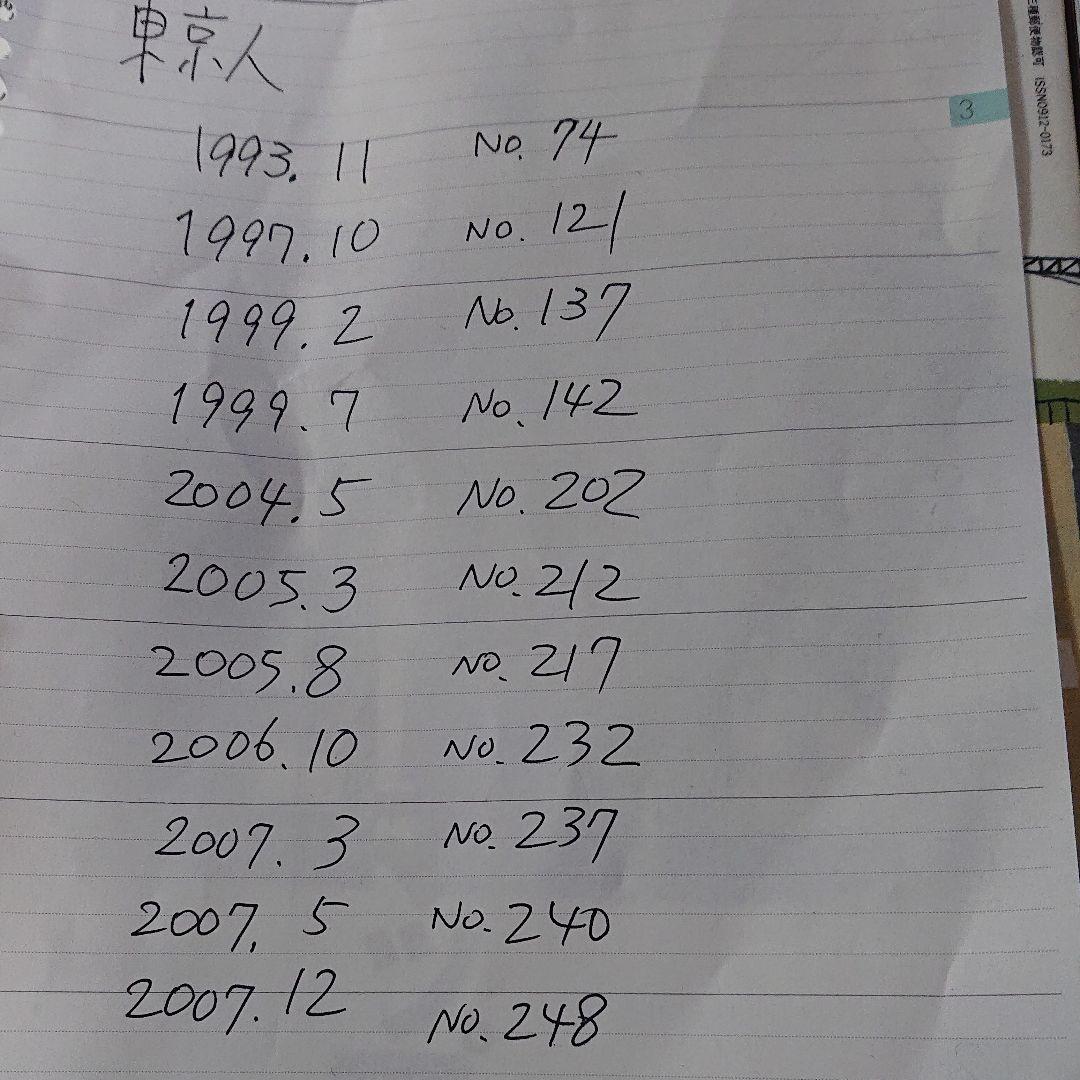 東京人
1993. 11 No. 74
1997. 10 No. 121
1999. 2 No. 137
1999. 7 No. 142
2004. 5 No. 202
2005. 3 No. 212
2005. 8 No. 217
2006. 10 No. 232
2007. 3 No. 237
2007. 5 No. 240
2007. 12 No. 248
3
三種郵便物認可 ISSN0912-0173